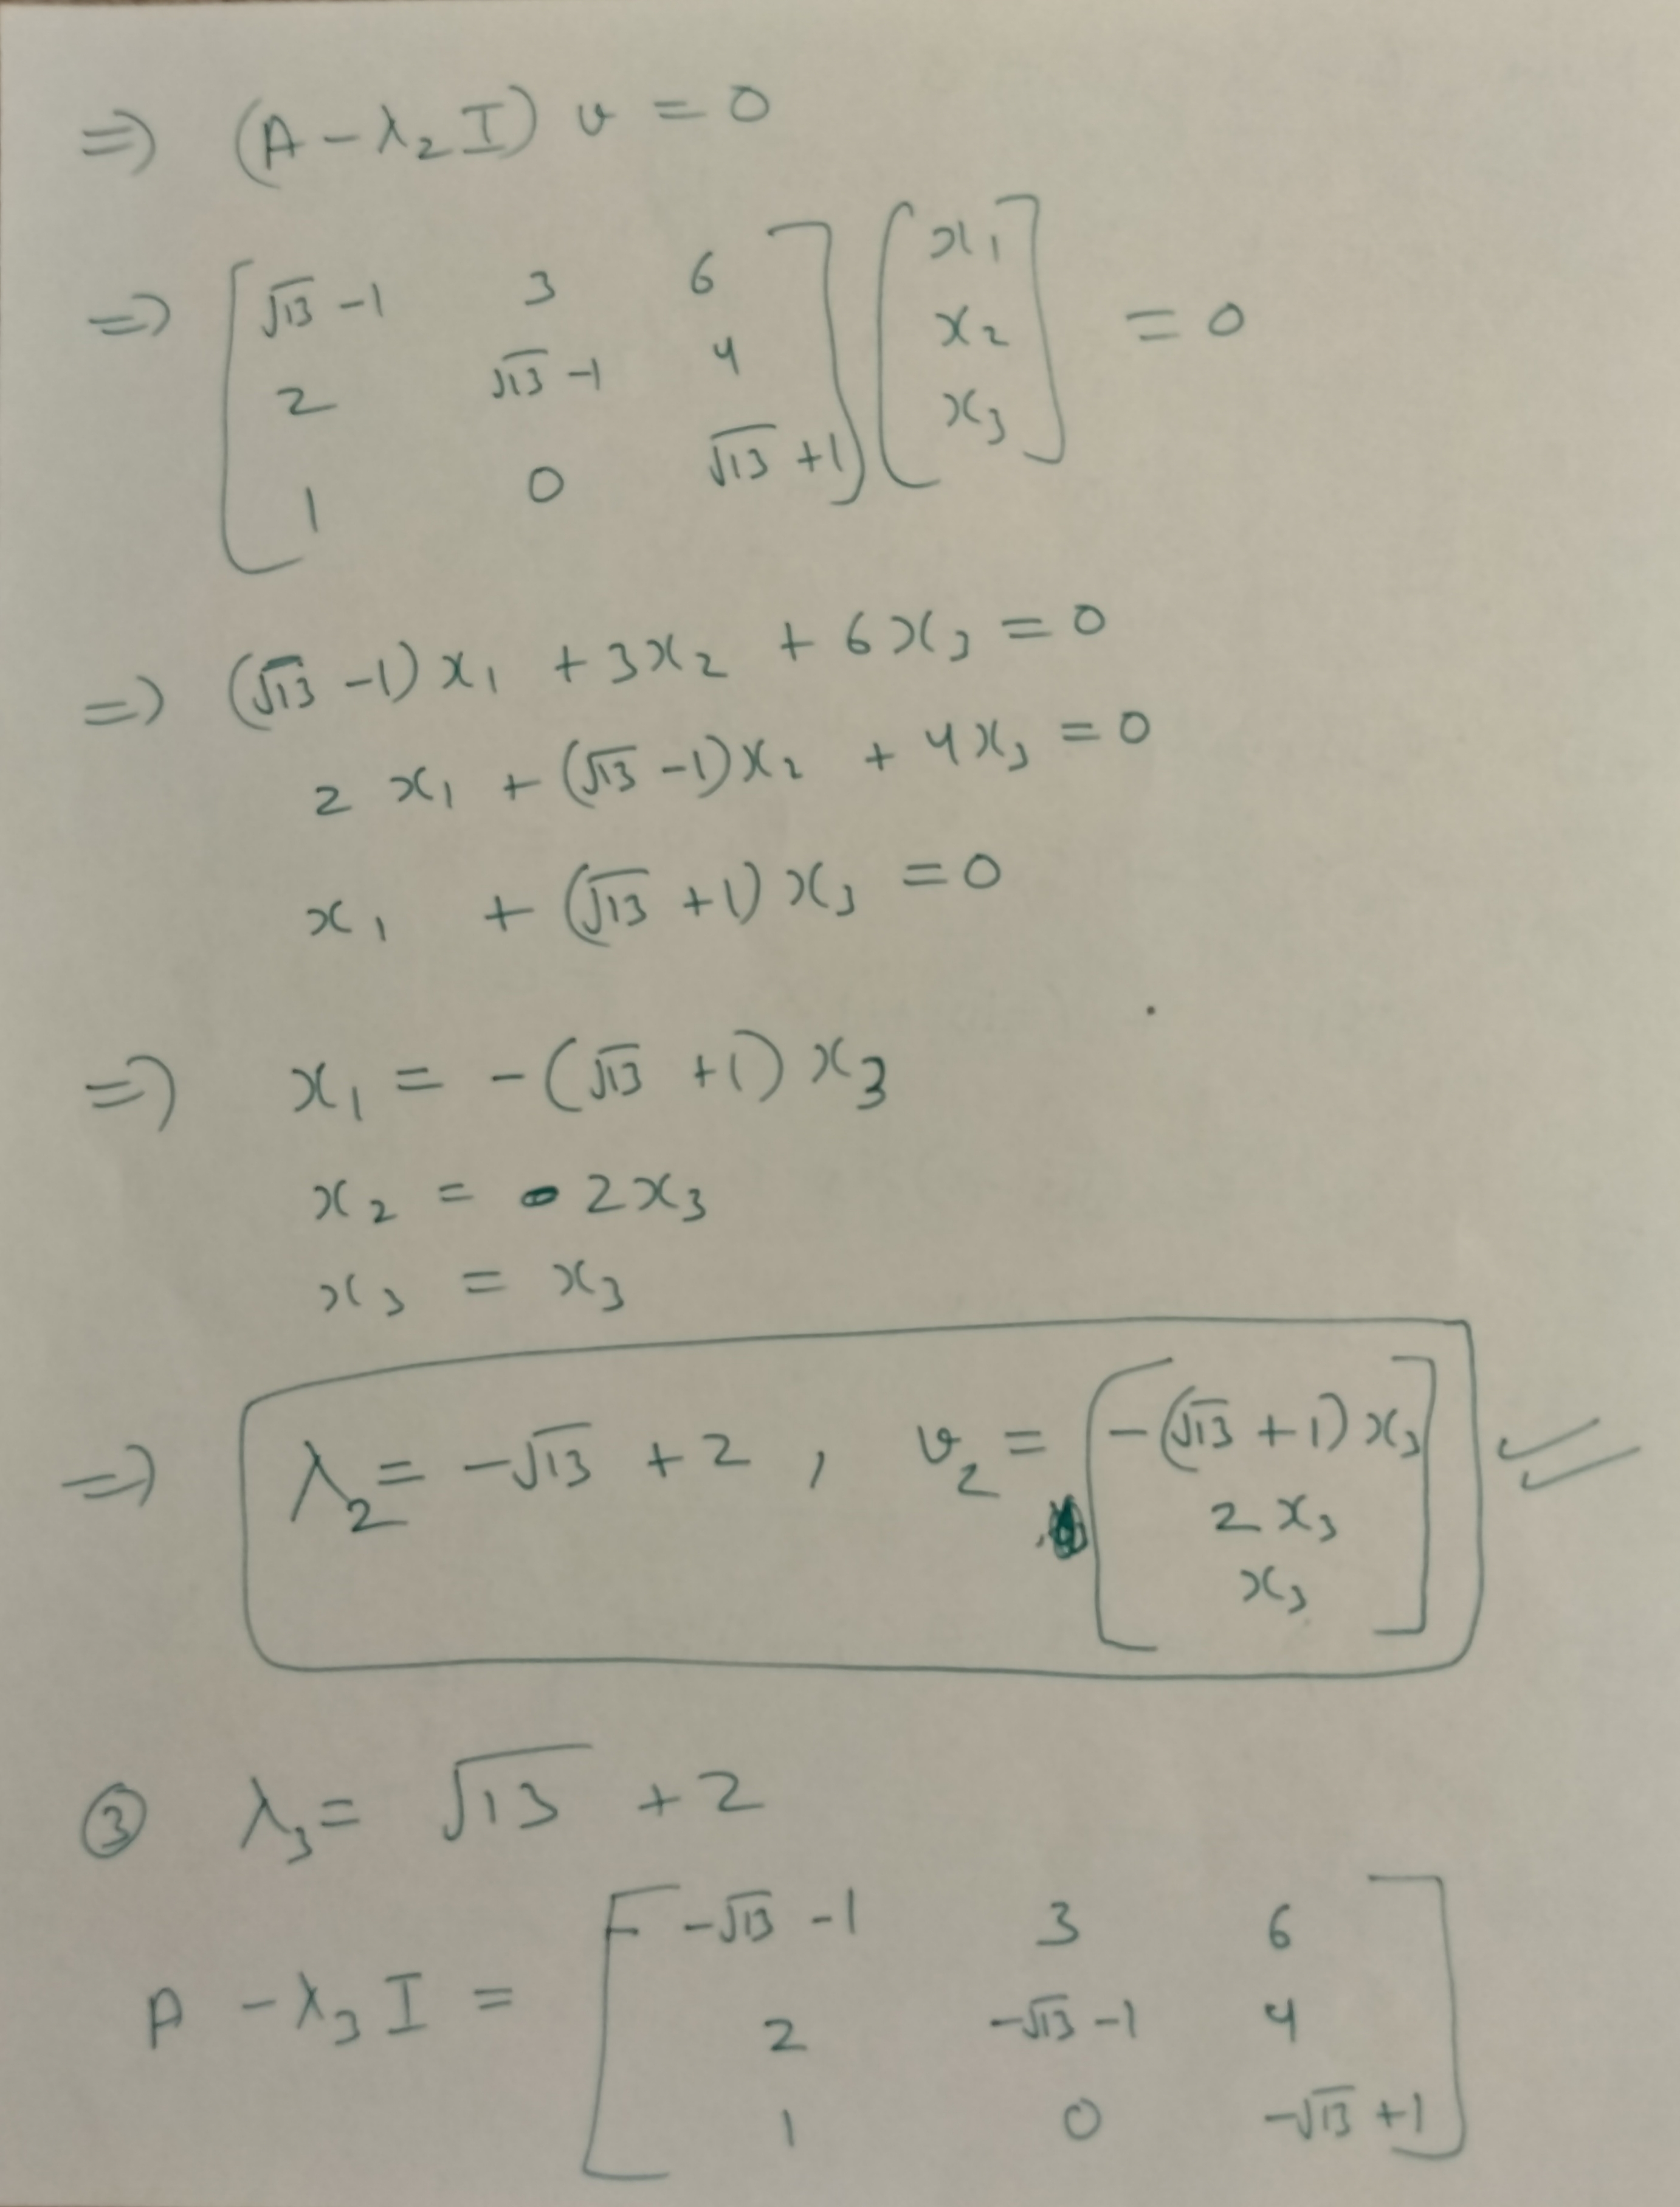 ⇒ (A − λ₂ I) v = 0
⇒ [ √13 −1   3   6 ] [ x₁ ]
[ 2   √13 −1   4 ] [ x₂ ] = 0
[ 1   0   √13 +1 ] [ x₃ ]
⇒ (√13 −1) x₁ + 3x₂ + 6x₃ = 0
2 x₁ + (√13 −1)x₂ + 4x₃ = 0
x₁ + (√13 +1) x₃ = 0
⇒ x₁ = −(√13 +1) x₃
x₂ = 2x₃
x₃ = x₃
⇒ λ₂ = −√13 + 2 , v₂ = [ −(√13 +1) x₃ ]
[ 2 x₃ ]
[ x₃ ]
③ λ₃ = √13 + 2
A − λ₃ I = [ −√13 −1   3   6 ]
[ 2   −√13 −1   4 ]
[ 1   0   −√13 +1 ]